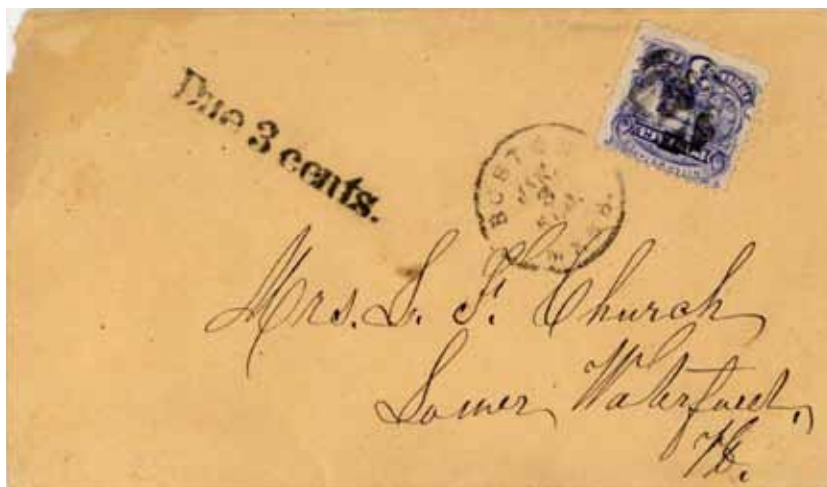 Due 3 cents.
BOSTON
MASS.
Mrs. L. F. Church
Lower Waterford,
Vt.